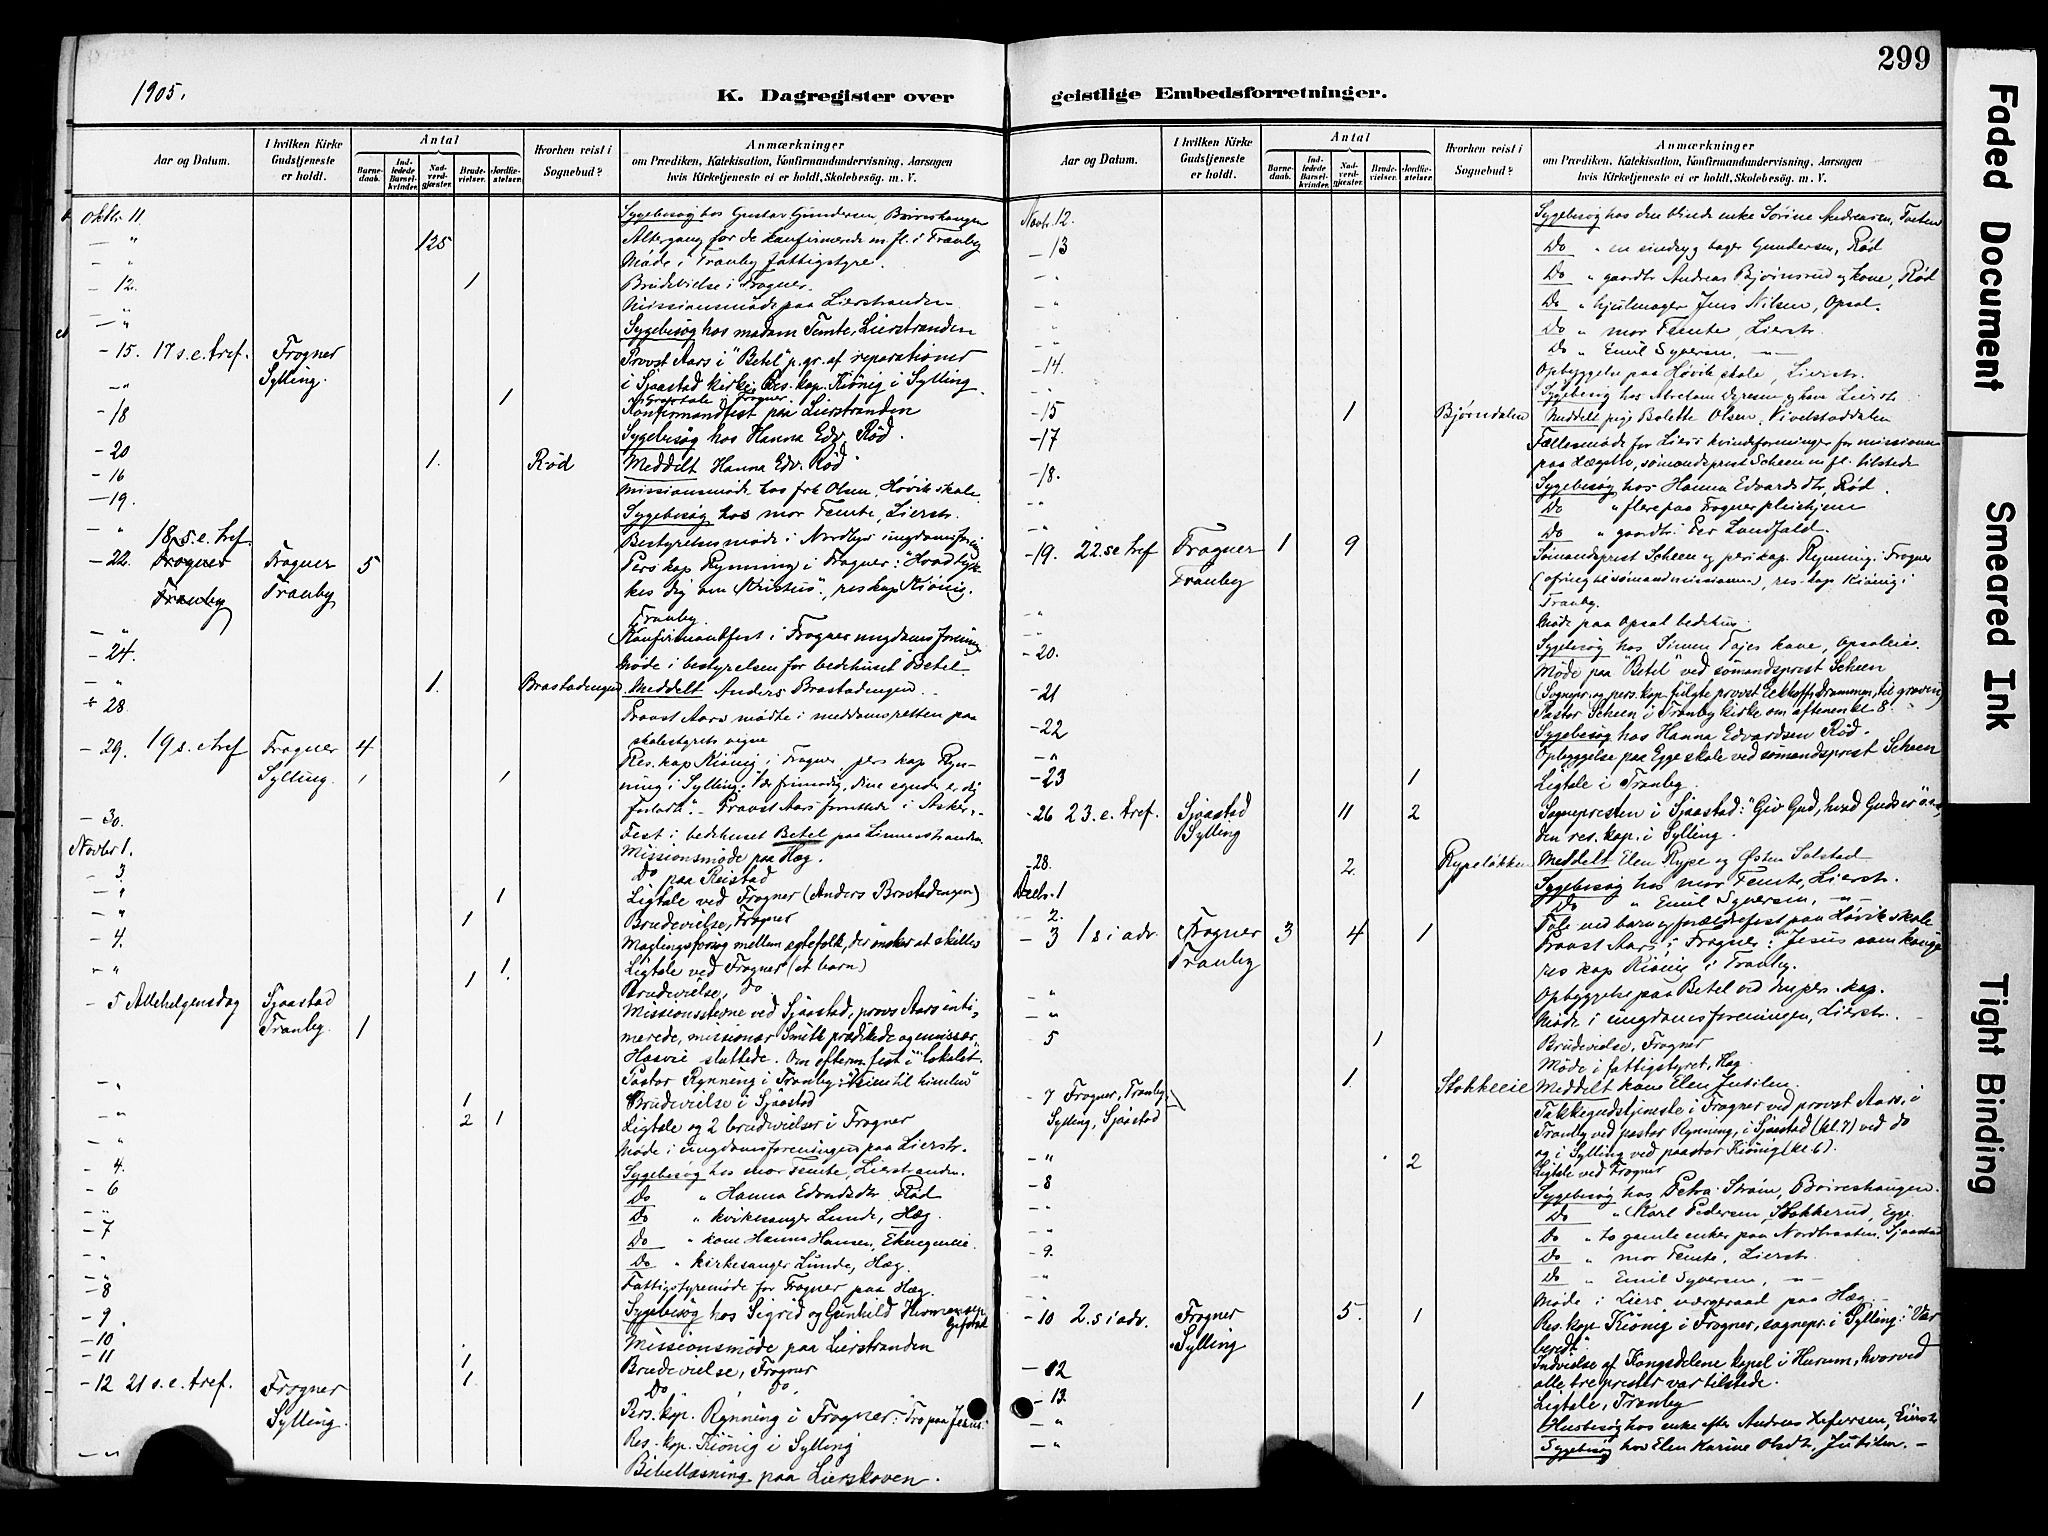 299
1905.
K. Dagregister over geistlige Embedsforretninger.
Aar og Datum.
I hvilken Kirke Gudstjeneste er holdt.
Antal
Barnedaab.
Indledede Barselkvinder.
Nadverdgjæster.
Brudevielser.
Jordfæstelser.
Hvorhen reist i Sognebud?
Anmærkninger
om Prædiken, Katekisation, Konfirmandundervisning, Aarsagen
hvis Kirketjeneste ei er holdt, Skolebesøg. m. V.
Oktbr. 11 Sygebesøg hos Gustav Gundersen,
— " 125 Altergang for de konfirmerede m fl. i Tranby
— " Møde i Tranby fattigstyre.
- 12. 1 Brudevielse i Frogner.
— " Missionsmøde paa Lierstranden
— " Sygebesøg hos madam Temte, Lierstranden
- 15. 17 s. e. tref. Frogner Provst Aars i "Betel" p. gr. af reparationer
Sylling. i Sjaastad kirke, Res. kap. Kiønig i Sylling.
— " 1 Gravtale i Frogner.
- 18 Konfirmandfest paa Lierstranden
- 20 Sygebesøg hos Hanna Edv. Rød.
- 16 1. Rød Meddelt Hanna Edv. Rød
- 19. Missionsmøde hos frk Olsen, Høvik skole
— " Sygebesøg hos mor Temte, Lierstr.
18 s. e. tref. Bestyrelsesmøde i Nordlys ungdomsforening
- 22. Frogner Frogner 5 Pers kap Rynning i Frogner: "Hvad tyk-
Tranby Tranby kes dig om Kristus", res kap Kiønig.
Tranby.
— " Konfirmantfest i Frogner ungdomsforening
- 24. Møde i bestyrelsen for bedehuset Betel.
— " 1. Brastadengen Meddelt Anders Brastadengen
- 28. Provst Aars mødte i meddomsretten paa
skolestyrets vegne
- 29. 19 s. e tref Frogner 4 Res. kap Kiønig i Frogner, pers kap Ryn-
Sylling. 1 1 ning i Sylling: Vær frimodig, dine synder er dig
forladt". - Provst Aars forrettede i Asker.
- 30. Fest i bedehuset Betel paa Linnesstranden
Novbr 1. Missionsmøde paa Hæg.
- 3 Do paa Reistad
— " 1 Ligtale ved Frogner (Anders Brastadengen)
— " 1 Brudevielse, Frogner
- 4. Mæglingsforsøg mellem egtefolk, der ønsker at skilles
— " 1. Ligtale ved Frogner (et barn)
1 Brudevielse, do.
- 5 Allehelgensdag Sjaastad Missionsstevne ved Sjaastad, provst Aars inti-
Tranby. 1 merede, missionær Smith prædikede og missær
Hasvie sluttede. Om efterm. fest i "lokalet".
Pastor Rynning i Tranby: "Veien til himlen"
— " 1 Brudevielse i Sjaastad
— " 2 1 Ligtale og 2 brudevielser i Frogner
— " Møde i ungdomsforeningen paa Lierstr.
- 4. Sygebesøg hos mor Temte, Lierstranden.
- 6 Do " Hanna Edvardsdtr Rød
— " Do " kirkesanger Lunde, Hæg.
- 7 Do " kone Hanna Hansen, Ekengeneie.
— " Do " kirkesanger Lunde, Hæg.
- 8 Fattigstyremøde for Frogner paa Hæg.
- 9 Sygebesøg hos Sigrid og Gunhild
- 10 Missionsmøde paa Lierstranden
- 11 1 Brudevielse, Frogner
1. Do do.
- 12 21 s. e. tref. Frogner Pers. kap. Rynning i Frogner: "Tro paa Jesus."
Sylling. Res. kap. Kiønig i Sylling
— " Bibellæsning paa Lierskoven.
Aar og Datum.
I hvilken Kirke Gudstjeneste er holdt.
Antal
Barnedaab.
Indledede Barselkvinder.
Nadverdgjæster.
Brudevielser.
Jordfæstelser.
Hvorhen reist i Sognebud?
Anmærkninger
om Prædiken, Katekisation, Konfirmandundervisning, Aarsagen
hvis Kirketjeneste ei er holdt, Skolebesøg. m. V.
Novbr. 12. Sygebesøg hos den blinde enke Sørine Andreasen,
- 13 Do " en sindsyg bager Gundersen, Rød
— " Do " gaardbr. Andreas Bjørnsrud og kone, Rød
— " Do " hjulmager Jens Nilsen, Opsal.
— " Do " mor Temte, Lierstr.
— " Do " Emil Syversen, — " —
- 14. Opbyggelse paa Høvik skole, Lierstr.
— " Sygebesøg hos og kone Lierstr.
- 15 1 Bjørndalen Meddelt pige Bolette Olsen, Vivelstaddalen
- 17 Fællesmøde for Liers kvindeforeninger for missionen
paa Hægsbo, sømandsprest Scheen m fl. tilstede
- 18. Sygebesøg hos Hanna Edvardsdtr, Rød.
— " Do " flere paa Frogner pleiehjem
— " Do " gaardbr. Per Landfald.
- 19. 22. s e tref Frogner 1 9 Sømandsprest Scheen og pers. kap. Rynning i Frogner
Tranby (ofring til sømandsmissionen), res. kap Kiønig i
Tranby.
— " Møde paa Opsal bedehus.
— " Sygebesøg hos Simen kone, Opsaleie.
- 20. Møde paa "Betel" ved sømandsprest Scheen
- 21 (Sognepr. og pers. kap. fulgte provst Eckhoff, Drammen, til graven)
Pastor Scheen i Tranby kirke om aftenen kl 8.
- 22 Sygebesøg hos Hanna Edvardsen Rød.
— " Opbyggelse paa Egge skole ved sømandsprest Scheen
- 23 1 Ligtale i Tranby.
- 26 23. e. tref. Sjaastad 11 2 Sognepresten i Sjaastad: "Giv Gud, hvad Guds er"
Sylling den res. kap. i Sylling.
- 28. 2. Rypeløkken Meddelt Elen Rype og Østen Solstad
Decbr. 1 Sygebesøg hos mor Temte, Lierstr.
Do " Emil Syversen, — " —
- 2. Tale ved barn og forældrefest paa Høvik skole
- 3 1 s i adv. Frogner 3 4 1 Provst Aars i Frogner: "Jesus som konge
Tranby res kap Kiønig i Tranby.
— " Opbyggelse paa Betel ved den pers. kap.
— " Møde i ungdomsforeningen, Lierstr.
- 5 1 Brudevielse, Frogner
Møde i fattigstyret, Hæg
1. Stokkeeie Meddelt kone Elen Jutilen.
- 7 Frogner, Tranby, Takkegudstjeneste i Frogner ved provst Aars, i
Sylling, Sjøastad Tranby ved pastor Rynning, i Sjaastad (kl. 7) ved do
og i Sylling ved paastor Kiønig (kl 6).
— " 2 Ligtale ved Frogner
- 8 Sygebesøg hos Petra Strøm,
— " Do " Karl Pedersen, Stokkerud, Egge.
— " Do " to gamle enker paa Nordbraaten, Sjaastad
- 9. Do " mor Temte, Lierstr.
— " Do " Emil Syversen, — " —
— " Møde i Liers værgeraad paa Hæg.
- 10 2. s i adv. Frogner 5. 1 Res. kap Kiønig i Frogner, sognepr. i Sylling: "Vær
Sylling beredt".
- 12 Indvielse af Kongsdelene kapel i Hurum, hvorved
alle tre prester var tilstede.
- 13. 1 Ligtale, Tranby
— " Husbesøg hos enke efter Andreas Lierstr
— " Sygebesøg hos Elen Karine Olsdtr, Jutilen. -
Faded Document
Smeared Ink
Tight Binding